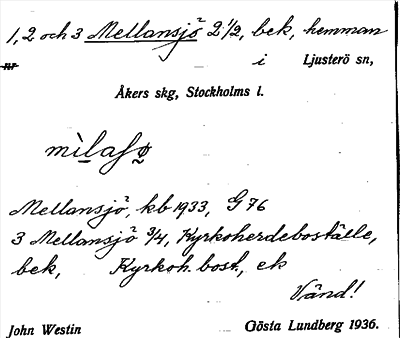 1, 2 och 3 Mellansjö 2 1/2, bek, hemman
nr i Ljusterö sn,
Åkers skg, Stockholms l.
mìlaſø
Mellansjö, kb 1933, G 76
3 Mellansjö 3/4, Kyrkoherdeboställe,
bek, Kyrkoh. bost., ek
Vänd!
John Westin Gösta Lundberg 1936.